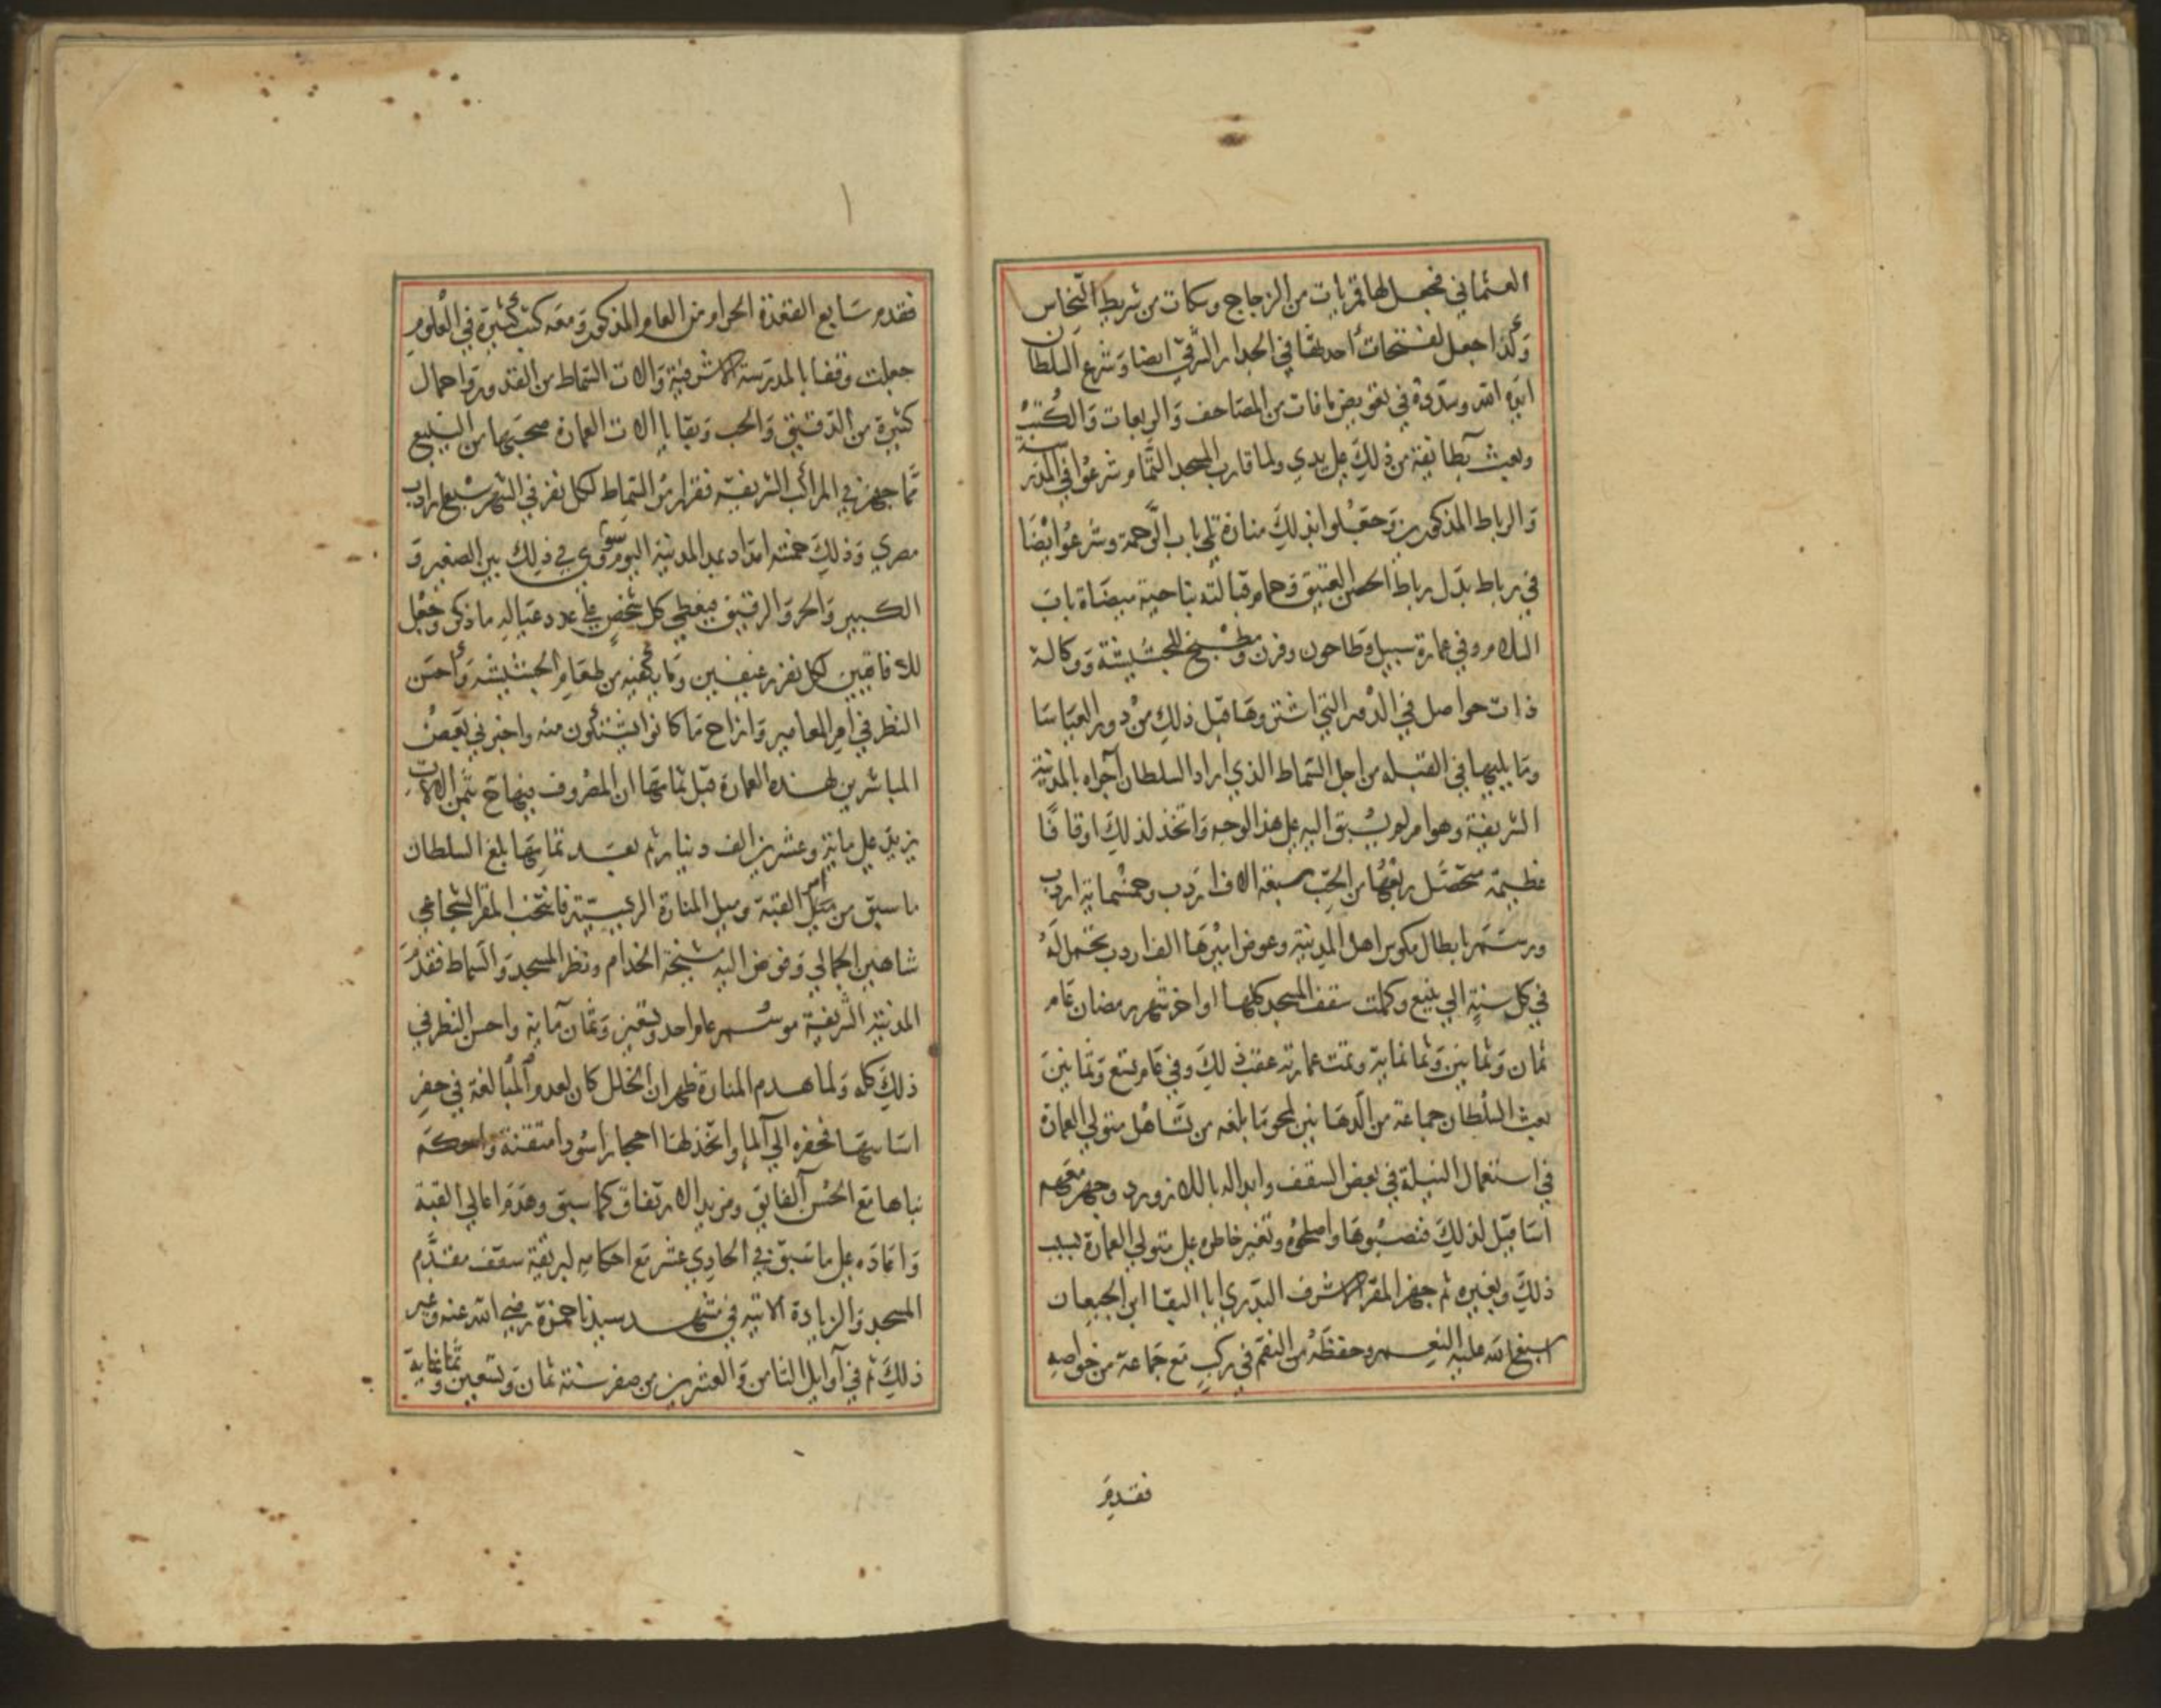 العثماني فجعل لها قمريات من الزجاج وشبكات من شريط النحاس
وكذا جعل لفتحات أحدثها في الجدار الشرقي ايضا وشرع السلطان
ايده الله وسدده في تعويض ما فات من المصاحف والربعات والكتب
وبعث بطائفة من ذلك على يدي ولما قارب المسجد التمام شرعوا في المدرسة
والرباط المذكورين وجعلوا لذلك منارة تلي باب الرحمة وشرعوا ايضا
في رباط بدل رباط الحصن العتيق وحمام قبالته بناحية ميضاة باب
السلام وفي عمارة سبيل وطاحون وفرن ومطبخ للجشيشة ووكالة
ذات حواصل في الدور التي اشتروها قبل ذلك من دور العباسا
وما يليها في القبلة من اجل السماط الذي اراد السلطان اجراه بالمدينة
الشريفة وهو امر لم يسبق اليه على هذا الوجه واتخذ لذلك اوقافا
عظيمة متحصل ريعها من الحب سبعة الاف اردب وخمسماية اردب
ورسم بابطال مكوس اهل المدينة وعوض اميرها الف اردب تحمل له
في كل سنة الى ينبع وكملت سقف المسجد كلها اواخر شهر رمضان عام
ثمان وثمانين وثمانماية وتمت عمارته عقب ذلك وفي عام تسع وثمانين
بعث السلطان جماعة من الدهانين لمحو ما بلغه من تساهل متولي العمارة
في استعمال النيلة في بعض السقف وابداله باللازورد وجهز معهم
اساقيل لذلك فنصبوها واصلحوه وتغير خاطره على متولي العمارة بسبب
ذلك وبغيره ثم جهز المقر الاشرف البدري ابا البقا ابن الجيعان
اسبغ الله عليه النعم وحفظه من النقم في ركب مع جماعة من خواصه
فقدم
فقدم سابع القعدة الحرام من العام المذكور ومعه كتب كثيرة في العلوم
جعلت وقفا بالمدرسة الاشرفية والات السماط من القدور واحمال
كثيرة من الدقيق والحب وبقايا الات العمارة صحبتها من الينبع
مما جهز في المراكب الشريفة فقرر من السماط لكل نفر في الشهر سبع اردب
مصري وذلك خمسة امداد بمد المدينة اليوم وسوى في ذلك بين الصغير و
الكبير والحر والرقيق فيعطي كل شخص على عدد عياله ما ذكر وجعل
للافاقيين لكل نفر رغيفين وما يكفيه من طعام الجشيشة واحسن
النظر في امر المعامير وازاح ما كانوا يشتكون منه واخبرني بعض
المباشرين لهذه العمارة قبل تمامها ان المصروف فيها مع ثمن الالات
يزيد على ماية وعشرين الف دينار ثم بعد تمامها بلغ السلطان
ما سبق من امر ميل القبة وميل المنارة الرييسية فانتخب المقر الشجاعي
شاهين الجمالي وفوض اليه مشيخة الخدام ونظر المسجد والسماط فقدم
المدينة الشريفة موسم عام واحد وتسعين وثمان ماية واحسن النظر في
ذلك كله ولما هدم المنارة ظهر ان الخلل كان لعدم المبالغة في حفر
اساسها فحفره الى الما واتخذ لها احجارا سودا متقنة واحكم
بناها مع الحسن الفايق ومزيد الارتفاق كما سبق وهدم اعالي القبة
واعاده على ما سبق في الحادي عشر مع احكامه لبريقية سقف مقدم
المسجد والزيادة الاتية في مشهد سيدنا حمزة رضي الله عنه وغير
ذلك ثم في اوايل الثامن والعشرين من صفر سنة ثمان وتسعين وثمانماية